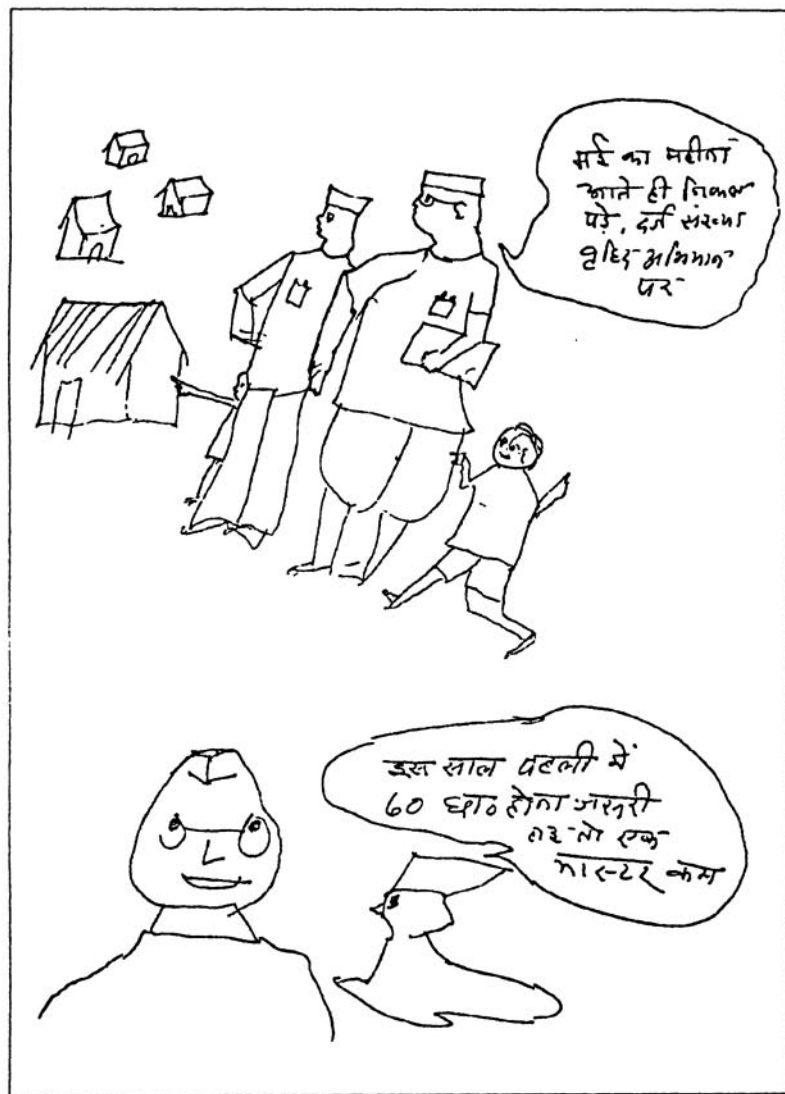 मई का महीना
आते ही निकल
पड़े. दर्ज संख्या
वृद्धि अभियान
पर
इस साल पहली में
60 छात्र होना जरूरी
है तो एक
मास्टर कम